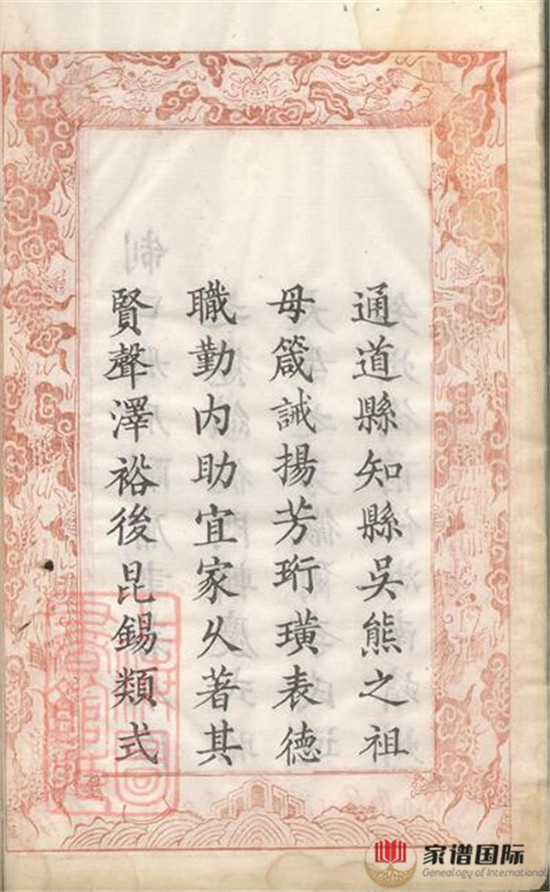 通道縣知縣吳熊之祖
母箴誡揚芳珩璜表德
職勤內助宜家乆著其
賢聲澤裕後昆錫類式
家谱国际
Genealogy of International